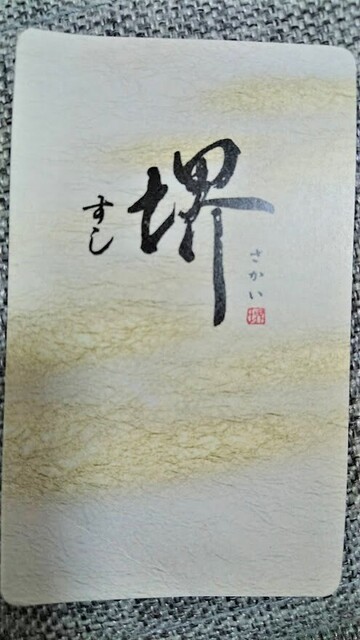 すし
堺
さかい